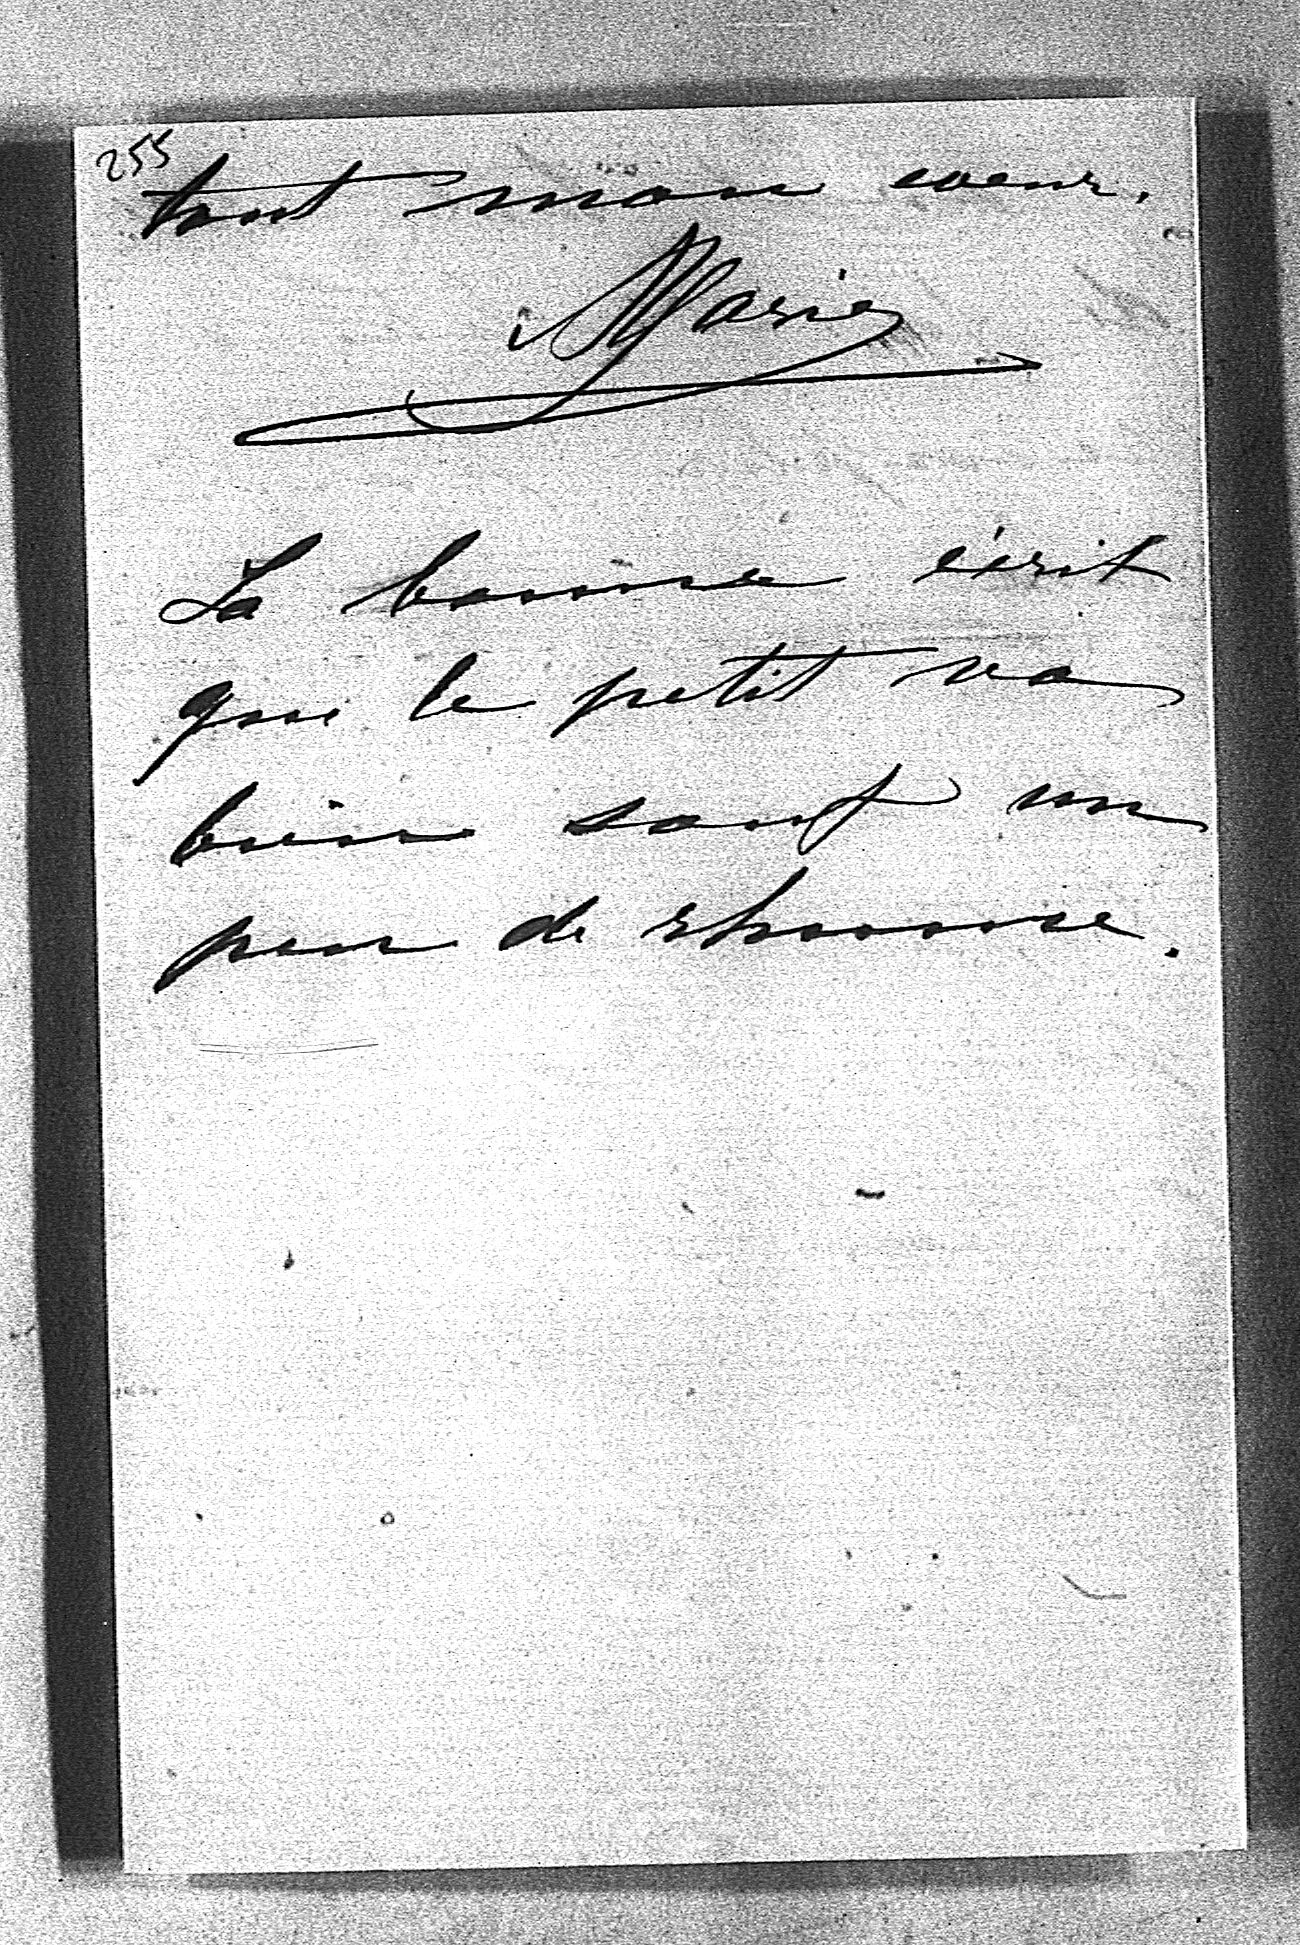 255
tout mon coeur.
Marie
La bonne écrit
que le petit va
bien sauf un
peu de rhume.